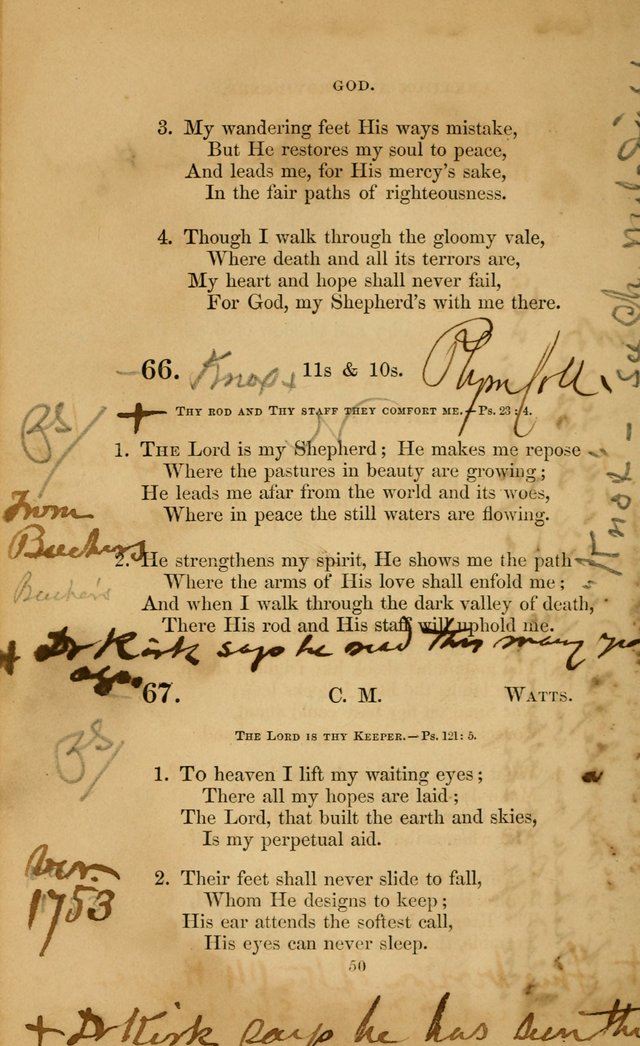 GOD.
3. My wandering feet His ways mistake,
But He restores my soul to peace,
And leads me, for His mercy's sake,
In the fair paths of righteousness.
4. Though I walk through the gloomy vale,
Where death and all its terrors are,
My heart and hope shall never fail,
For God, my Shepherd's with me there.
66. Knox + 11s & 10s. Plym Coll
+ Thy rod and Thy staff they comfort me.—Ps. 23 : 4.
1. The Lord is my Shepherd; He makes me repose
Where the pastures in beauty are growing;
He leads me afar from the world and its woes,
Where in peace the still waters are flowing.
From
Beechers
Beecher's
2. He strengthens my spirit, He shows me the path
Where the arms of His love shall enfold me;
And when I walk through the dark valley of death,
There His rod and His staff will uphold me.
+ Dr Kirk says he read this many
ago.
67. C. M. Watts.
The Lord is thy Keeper.—Ps. 121: 5.
1. To heaven I lift my waiting eyes;
There all my hopes are laid;
The Lord, that built the earth and skies,
Is my perpetual aid.
1753
2. Their feet shall never slide to fall,
Whom He designs to keep;
His ear attends the softest call,
His eyes can never sleep.
50
+ Dr Kirk says he has seen
Knox